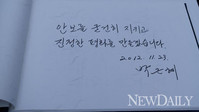 안보를 굳건히 지키고
진정한 평화를 만들겠습니다
2012. 11. 23
박근혜
NEWDAILY